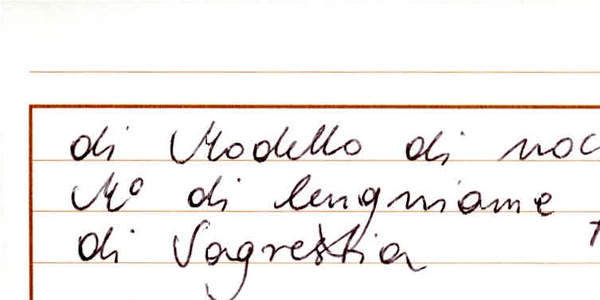 di Modello di noc
Mº di lengniame
di Sagrestia